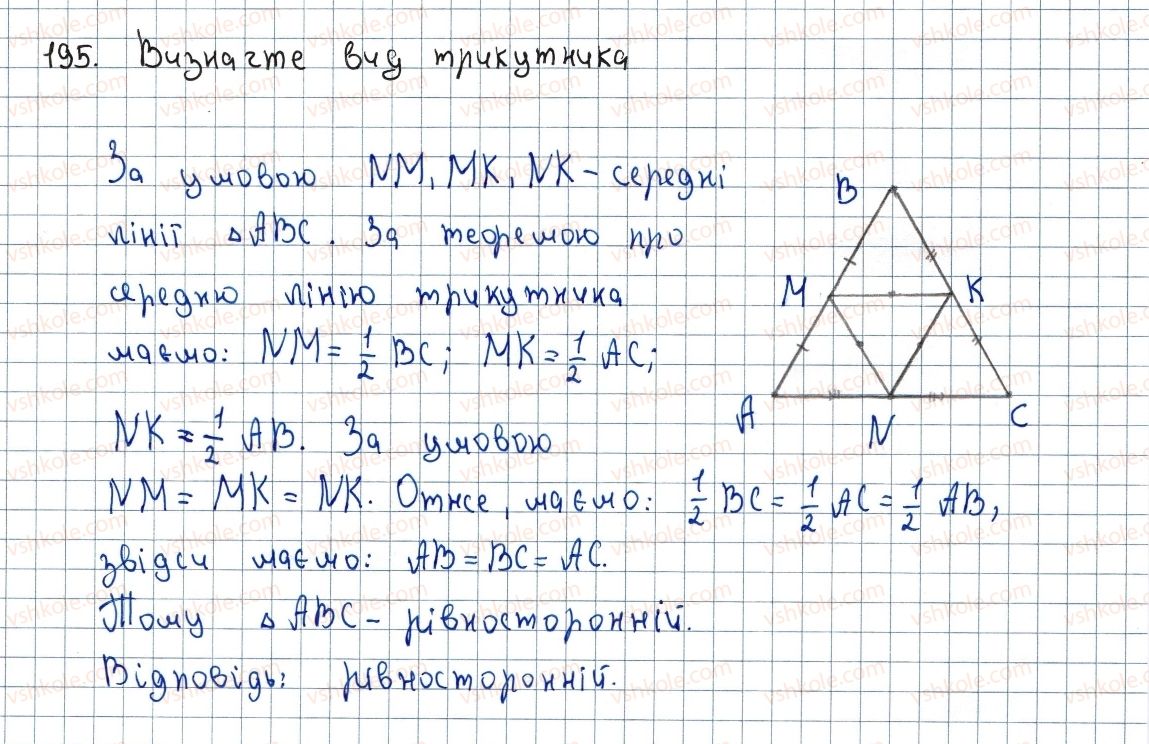 195. Визначте вид трикутника
За умовою NM, MK, NK – середні
лінії △ABC. За теоремою про
середню лінію трикутника
маємо: NM = 1/2 BC; MK = 1/2 AC;
NK = 1/2 AB. За умовою
NM = MK = NK. Отже, маємо: 1/2 BC = 1/2 AC = 1/2 AB,
звідси маємо: AB = BC = AC.
Тому △ABC – рівносторонній.
Відповідь: рівносторонній.
B
M
K
A
N
C
vshkole.com